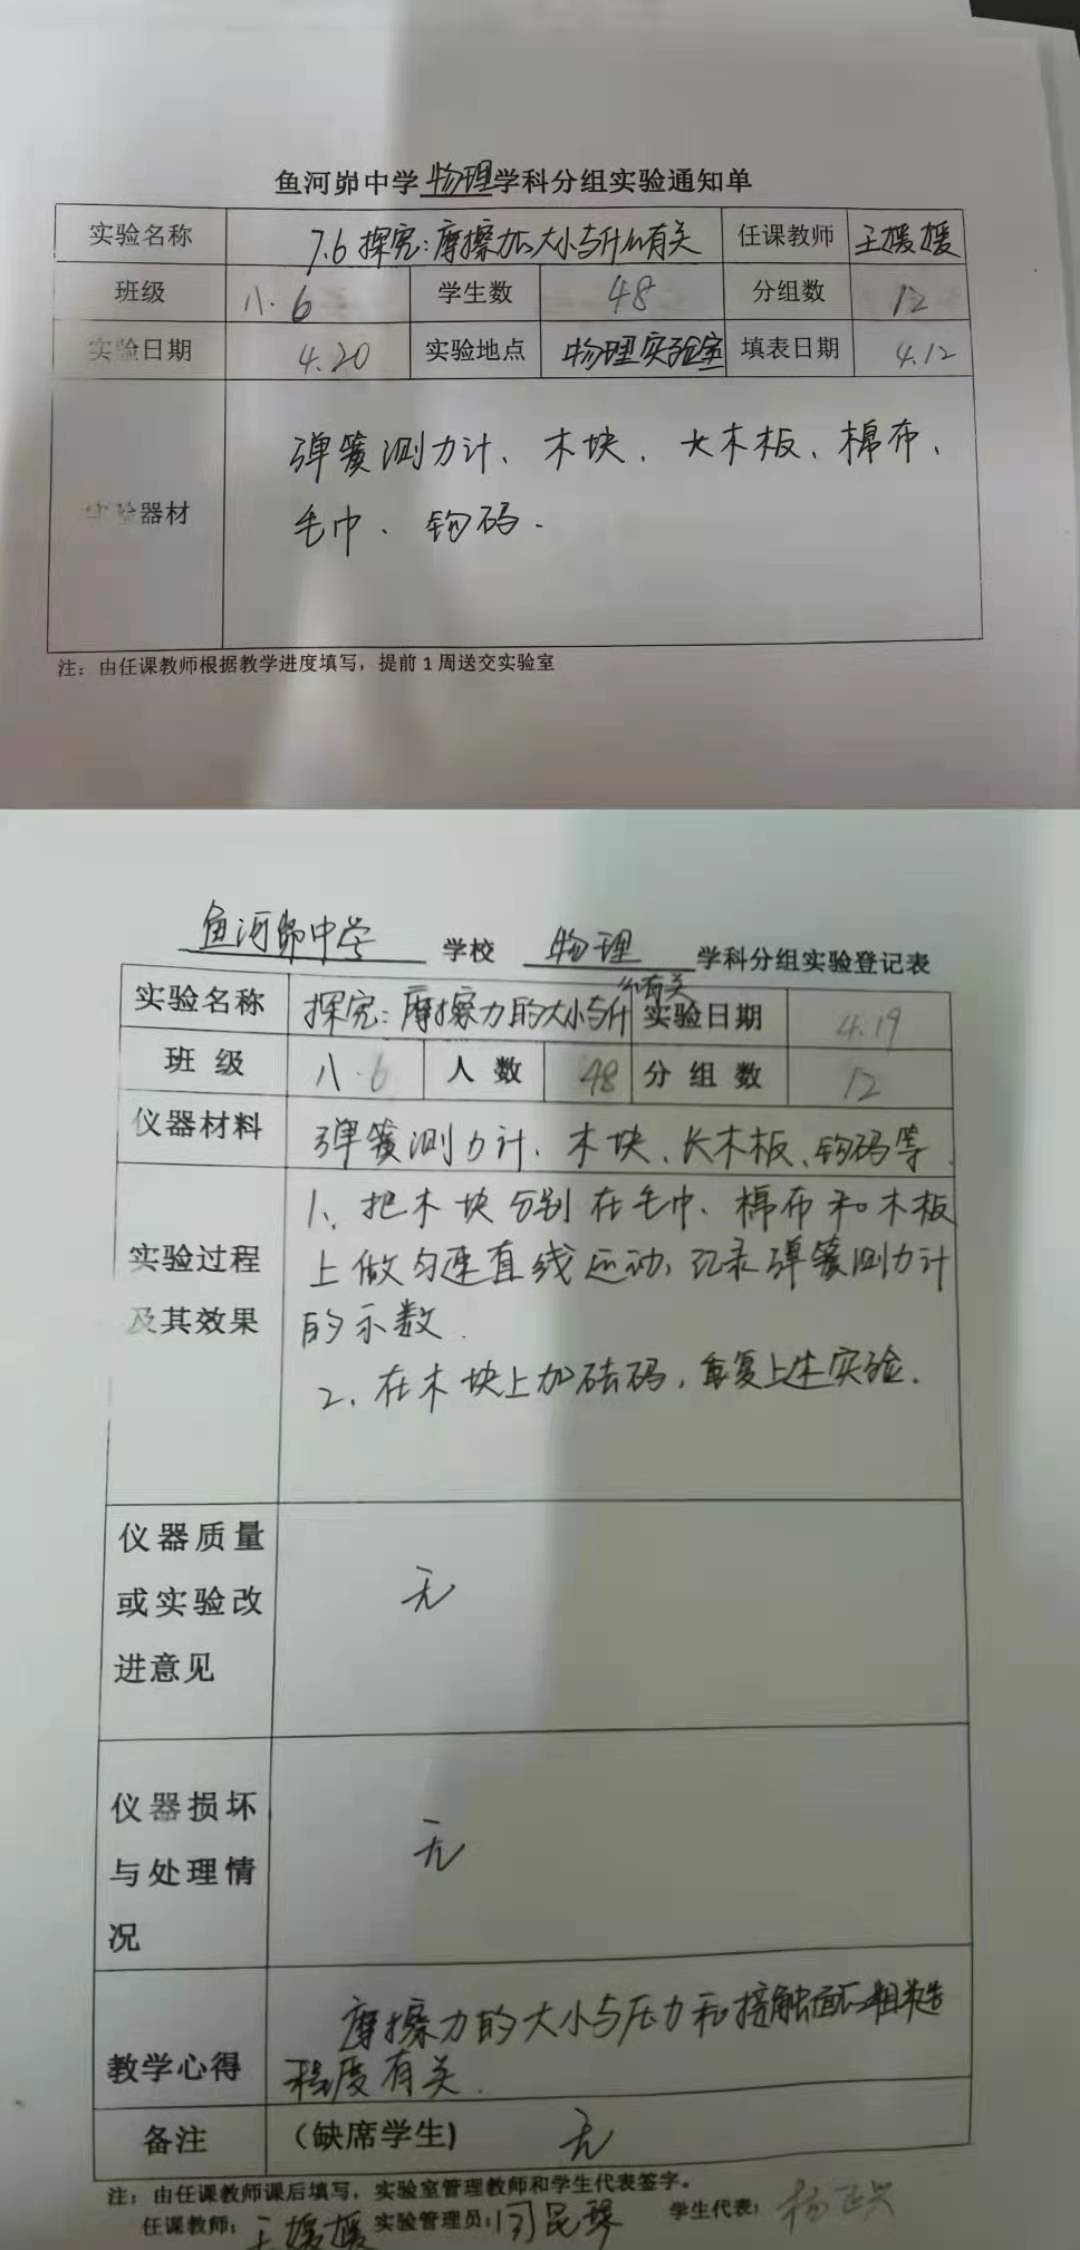 鱼河峁中学物理学科分组实验通知单
实验名称 7.6 探究:摩擦力的大小与什么有关 任课教师 王媛媛
班级 八.6 学生数 48 分组数 12
实验日期 4.20 实验地点 物理实验室 填表日期 4.12
弹簧测力计、木块、长木板、棉布、
实验器材
毛巾、钩码.
注：由任课教师根据教学进度填写，提前1周送交实验室
鱼河峁中学 学校 物理 学科分组实验登记表
实验名称 探究:摩擦力的大小与什么有关 实验日期 4.19
班级 八.6 人数 48 分组数 12
仪器材料 弹簧测力计、木块、长木板、钩码等.
1、把木块分别在毛巾、棉布和木板
实验过程 上做匀速直线运动,记录弹簧测力计
及其效果 的示数.
2、在木块上加砝码,重复上述实验.
仪器质量
或实验改 无
进意见
仪器损坏
与处理情 无
况
摩擦力的大小与压力和接触面的粗糙
教学心得 程度有关.
备注 (缺席学生) 无
注：由任课教师课后填写，实验室管理教师和学生代表签字。
任课教师: 王媛媛 实验管理员: 学生代表: